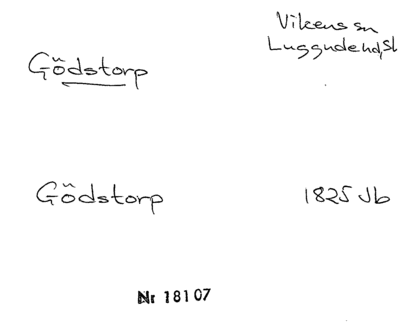 Vikens sn
Luggude hd, Sk
Gödstorp
Gödstorp 1825 Jb
Nr 18107